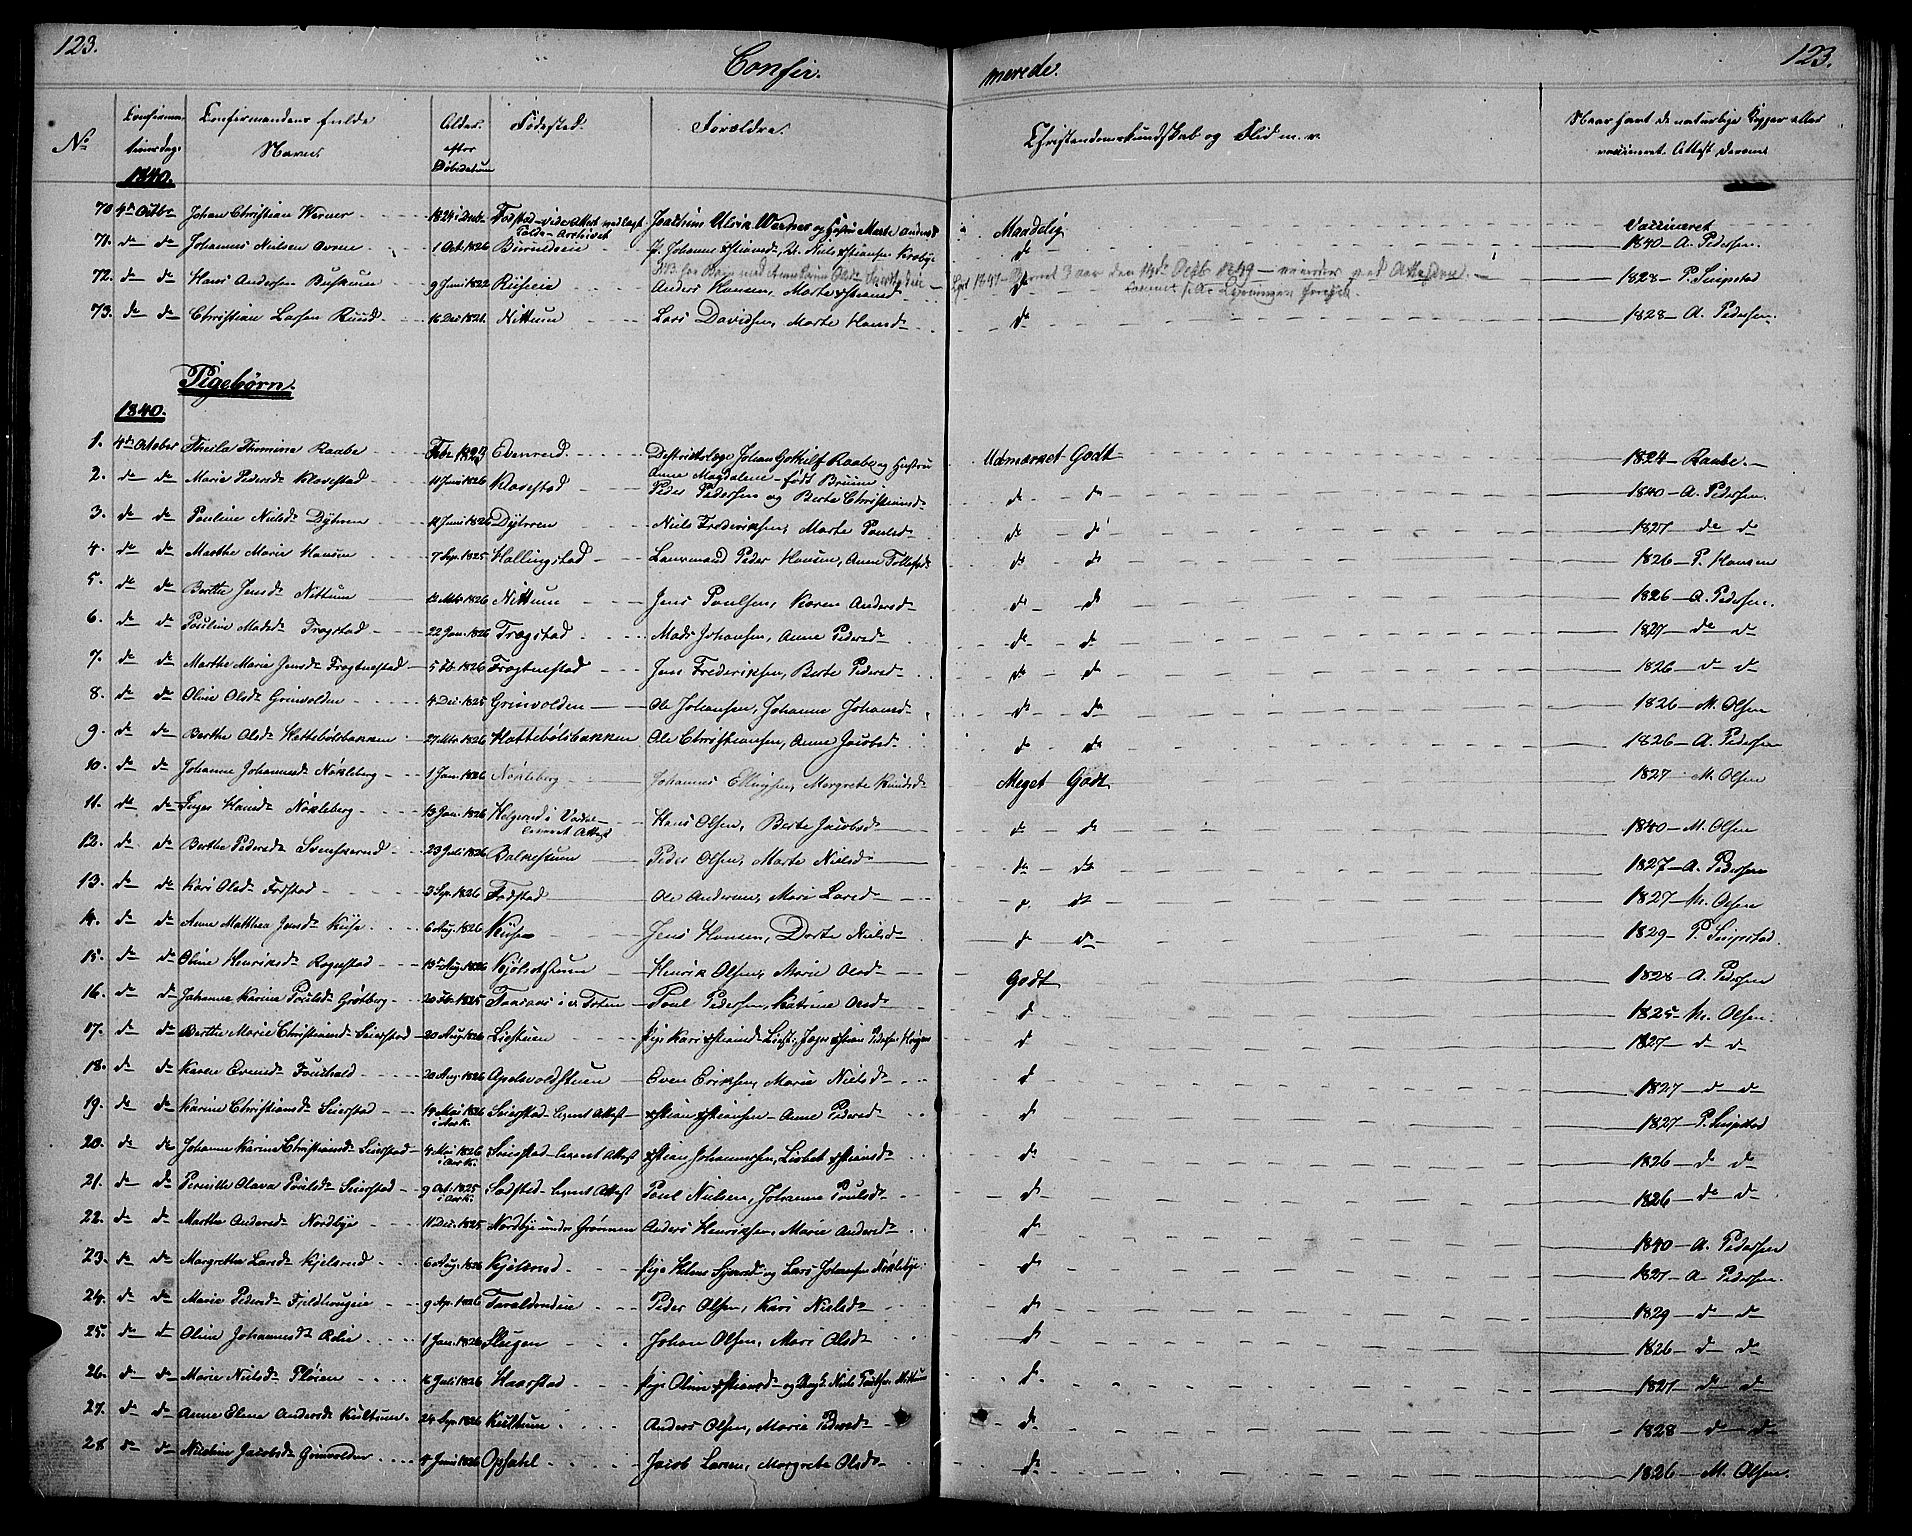 123.
Confir.
merede.
123.
No
Confirma-
tionsdag.
Confirmandens fulde
Navn.
Alder
efter
Døbedatum
Fødested.
Forældre.
Christendomskundskab og Flid m. v.
Naar havt de naturlige Kopper eller
vaccineret. Attest derom
1840.
70 4de Octbr Johan Christian Werner 1824 i Decbr. Fodstad - Joachim Ulrik Werner og Hustru Marte Andersd Maadelig Vaccineret
71. do do Johannes Nielsen 1 Oct. 1826 do 1840 - A. Pedersen
72. do do Hans Andersen Buskum 9 Juni 1822 Anders Hansen, Marte Xstiansd do 1828 - P. Sivestad
73. do do Christian Larsen Ruud 16 Dec 1821. Nettum Lars Davidsen, Marte Hansd do 1828 - A. Pedersen.
Pigebørn.
1840.
1. 4de October Thimine Raabe Febr. Evenrud Districtslæge Johan Gothilf Raabe og Hustru Udmærket Godt 1824 - Raabe.
Anne Magdalene født Bruun
2. do do Marie Pedersd Klovestad 11 Juni 1826 Klovestad Peder Pedersen og Berte Christiansd do do 1840 - A. Pedersen.
3. do do Pauline Nielsd Dyhren 11 Juni 1826 Dyhren Niels Frederiksen, Marte Poulsd do do 1827 - do do
4. do do Marthe Marie Hansen 7 Sep. 1825 Hallingstad Lensmand Peder Hansen, Anne Tollefsd do do 1826 - P. Hansen
5. do do Berthe Jensd Nettum 12 Mrts 1826 Nettum Jens Poulsen, Karen Andersd do do 1826 - A. Pedersen.
6. do do Pauline Madsd Trogstad 22 Jan. 1826 Trogstad Mads Johansen, Anne Pedersd do do 1827 - do do
7. do do Marthe Maria Jensd Frogtnestad 5 Feb. 1826 Frogtnestad Jens Frederiksen, Berte Pedersd do do 1826 - do do
8. do do Oline Olsd Grinvolden 4 Dec. 1825 Grinvolden Ole Johansen, Johanne Johansd do do 1826 - M. Olsen
9. do do Berthe Olsd Hattebølbakken 27 Mts 1826 Hattebølsbakken Ole Christiansen, Anne Jacobsd do do 1826 - A. Pedersen
10. do do Johanne Johannesd Nøkleberg 1 Jan. 1826 Nøkleberg Johannes Ellingsen, Margrete Knudsd Meget Godt 1827 - M. Olsen
11. do do Inger Hansd Nøkleberg 13 Jan. 1826 Helgerud i Vardal Hans Olsen, Berte Jacobsd do do 1840 - M. Olsen
Leveret Attest
12. do do Berthe Pedersd Svenskerud 23 Juli 1826 Balkestuen Peder Olsen, Marte Nielsd do do 1827 - A. Pedersen
13. do do Kari Olsd Fodstad 3 Sep. 1826 Fodstad Ole Andersen, Mari Larsd d. do 1827 - M. Olsen
14. do do Anne Mathea Jensd Kise 6 Aug. 1826 Kise Jens Hansen, Dorte Nielsd d do 1829 - P. Sivestad.
15. do do Oline Henriksd Rognstad 13 Aug. 1826 Kjølsetstuen Henrik Olsen, Marie Olsd Godt 1828 - A. Pedersen
16. do do Johanne Karine Poulsd Grøtberg 20 Feb. 1825 i V. Toten Poul Pedersen, Katrine Olsd d 1825 - M. Olsen.
17. do do Berthe Marie Christiansd Seierstad 20 Aug. 1826 Listuen Pige Kari Xstiansd d 1827 - d d
18. do do Karen Evensd 20 Aug. 1826 Apelsvoldstuen Even Eriksen, Marie Nielsd d 1827 - d d
19. do do Karine Christiansd Seierstad 14 Mai 1826 Seierstad - Levert Attest Xstian Xstiansen - Anne Pedersd d 1827 - P. Sivestad
20. do do Johanne Karine Christiansd Seierstad 4 Mai 1826 Seierstad - Levert Attest Xstian Johannesen, Lisbet Xstiansd do 1826 - d d
21. do do Pernille Olava Poulsd Seierstad 9 Oct. 1825 Levert Attest Poul Nielsen, Johanne Poulsd d 1826 - do d
22. do do Marthe Andersd Nordbye 11 Dec. 1825 Nordbye under Grønnen Anders Henriksen, Marie Andersd d 1840 - A. Pedersen
23. do do Margrethe Larsd Kjelsrud 6 Aug. 1826 Kjelsrud Pige Helene Sjversd og Lars Johansen Nøklebye. d 1827 - A Pedersen.
24. do do Marie Pedersd 9 Ap. 1826 Peder Olsen, Kari Nielsd d 1829 - d d
25. do d Oline Johannesd 1 Jan. 1826 Haugen Johan Olsen, Mari Olsd d 1826 - d d
26. do do Marie Nielsd Pløien 16 Juli 1826 Haarstad Pige Oline Xstiansd og d 1827 - d d
27. do do Anne Elene Andersd Kultum 24 Sep. 1826 Kultum Anders Olsen, Marie Pedersd d 1828 - d d
28 do do Jacobsd Grinvolden 4 Juni 1826 Opsahl Jacob Larsen, Margrete Olsd do 1826 - M. Olsen.